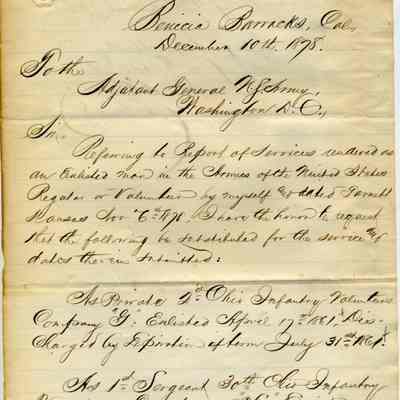 Benicia Barracks, Cal.
December 10th. 1878.
To the
Adjutant General U.S. Army,
Washington D.C.,
Sir:
Referring to Report of Services rendered as
an Enlisted man in the Armies of the United States
Regular or Volunteer by myself dated
Kansas Nov 6th 1878, I have the honor to request
that the following be substituted for the service &
dates therein submitted:
As Private 2d. Ohio Infantry Volunteers
Company "G". Enlisted April 17th 1861. Dis-
charged by Expiration of term July 31st 1861.
As 1st Sergeant 30th Ohio Infantry